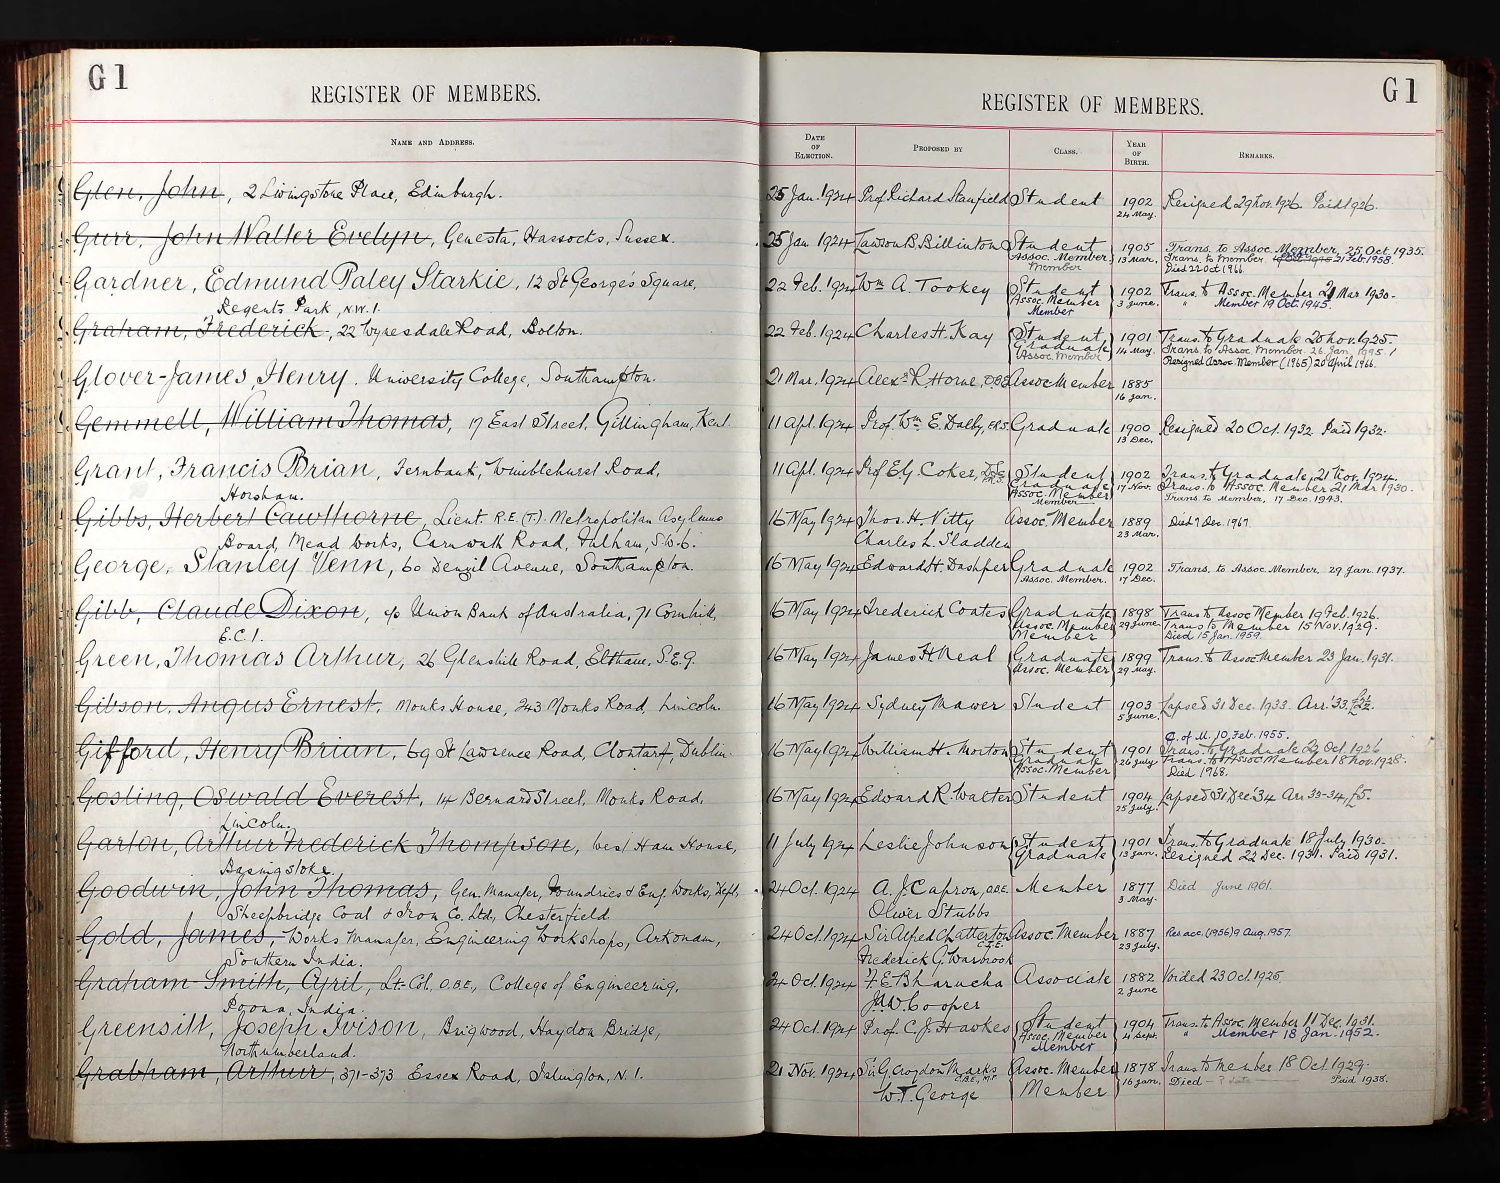 G 1
REGISTER OF MEMBERS.
NAME AND ADDRESS.
Glen, John, 2 Livingstone Place, Edinburgh.
Gurr, John Walter Evelyn, Genesta, Hassocks, Sussex.
Gardner, Edmund Paley Starkie, 12 St George's Square,
Regents Park, N.W.1.
Graham, Frederick, 22 Wyresdale Road, Bolton.
Glover-James, Henry. University College, Southampton.
Gemmell, William Thomas, 17 East Street, Gillingham, Kent.
Grant, Francis Brian, Fernbank, Wimblehurst Road,
Horsham.
Gibbs, Herbert Cawthorne, Lieut. R.E. (T.) Metropolitan Asylums
Board, Mead Works, Carnwath Road, Fulham, S.W.6.
George, Stanley Venn, 60 Denzil Avenue, Southampton.
Gibb, Claude Dixon, c/o Union Bank of Australia, 71 Cornhill,
E.C.1.
Green, Thomas Arthur, 26 Glenshill Road, Eltham, S.E.9.
Gibson, Angus Ernest, Monks House, 243 Monks Road, Lincoln.
Gifford, Henry Brian, 69 St Lawrence Road, Clontarf, Dublin.
Gosling, Oswald Everest, 14 Bernard Street, Monks Road,
Lincoln.
Garton, Arthur Frederick Thompson, West Ham House,
Basingstoke.
Goodwin, John Thomas, Gen. Manager, Foundries & Eng. Works, Dept,
Sheepbridge Coal & Iron Co. Ltd, Chesterfield
Gold, James, Works Manager, Engineering Workshops, Arkonam,
Southern India.
Graham-Smith, April, Lt-Col. O.B.E., College of Engineering,
Poona, India.
Greensitt, Joseph Ivison, Brigwood, Haydon Bridge,
Northumberland.
Grabham, Arthur, 371-373 Essex Road, Islington, N.1.
G 1
REGISTER OF MEMBERS.
DATE OF ELECTION. PROPOSED BY CLASS. YEAR OF BIRTH. REMARKS.
25 Jan. 1924 Prof Richard Stanfield Student 1902 Resigned 29 Nov. 1926. Paid 1926.
24 May.
25 Jan 1924 Lawson B. Billinton Student 1905 Trans. to Assoc. Member, 25 Oct. 1935.
Assoc. Member 13 Mar. Trans. to Member 21 Feb. 1958.
Member Died 22 Oct 1966
22 Feb. 1924 Wm A. Tookey Student 1902 Trans. to Assoc. Member 21 Mar 1930.
Assoc Member 3 June. " Member 19 Oct. 1945.
Member
22 Feb. 1924 Charles H. Kay Student 1901 Trans. to Graduate 20 Nov. 1925.
Graduate 14 May. Trans. to Assoc. Member. 26 Jan.
Assoc Member Resigned Assoc. Member (1965) 20 April 1966.
21 Mar. 1924 Alexr R Horne, O.B.E. Assoc Member 1885
16 Jan.
11 Apl. 1924 Prof. Wm. E. Dalby, F.R.S. Graduate 1900 Resigned 20 Oct. 1932. Paid 1932.
13 Dec.
11 Apl. 1924 Prof E.G. Coker, D.Sc. F.R.S. Student 1902 Trans. to Graduate, 21 Nov. 1924.
Graduate 17 Nov. Trans. to Assoc. Member 21 Mar 1930.
Assoc. Member Trans. to Member, 17 Dec. 1943.
Member
16 May 1924 Thos. H. Vitty Assoc. Member 1889 Died 7 Dec. 1967
Charles L. Sladden 23 Mar.
16 May 1924 Edward H. Dashper Graduate 1902 Trans. to Assoc. Member. 29 Jan 1937.
Assoc. Member. 17 Dec.
16 May 1924 Frederick Coates Graduate 1898 Trans. to Assoc Member 19 Feb. 1926.
Assoc. Member 29 June. Trans to Member 15 Nov. 1929.
Member Died 15 Jan. 1959.
16 May 1924 James H. Neal Graduate 1899 Trans. to Assoc Member 23 Jan. 1931.
Assoc. Member 29 May.
16 May 1924 Sydney Mawer Student 1903 Lapsed 31 Dec. 1933. Arr. '33.
5 June.
C. of M. 10 Feb. 1955.
16 May 1924 William H. Morton Student 1901 Trans. to Graduate 22 Oct. 1926
Graduate 26 July. Trans. to Assoc Member 18 Nov. 1928.
Assoc. Member Died 1968.
16 May 1924 Edward R. Walter Student 1904 Lapsed 31 Dec '34 Arr 33-34, £5.
25 July.
11 July 1924 Leslie Johnson Student 1901 Trans. to Graduate 18 July 1930.
Graduate 13 Jan. Resigned 22 Dec. 1931. Paid 1931.
24 Oct. 1924 A. J. Capron, O.B.E. Member 1877 Died June 1961.
Oliver Stubbs 3 May.
24 Oct. 1924 Sir Alfred Chatterton C.I.E. Assoc. Member 1887 Res acc. (1956) 9 Aug. 1957.
Frederick G. Warbrook 23 July.
24 Oct. 1924 F. E. Bharucha Associate 1882 Voided 23 Oct. 1925.
J.W. Cooper 2 June
24 Oct. 1924 Prof C. J. Hawkes Student 1904 Trans. to Assoc. Member 11 Dec. 1931.
Assoc. Member 4 Sept. " Member 18 Jan. 1952.
Member
21 Nov. 1924 Sir G. Croydon Marks C.B.E., M.P. Assoc. Member 1878 Trans to Member 18 Oct. 1929.
W. T. George Member 16 Jan. Died - ? date Paid 1938.